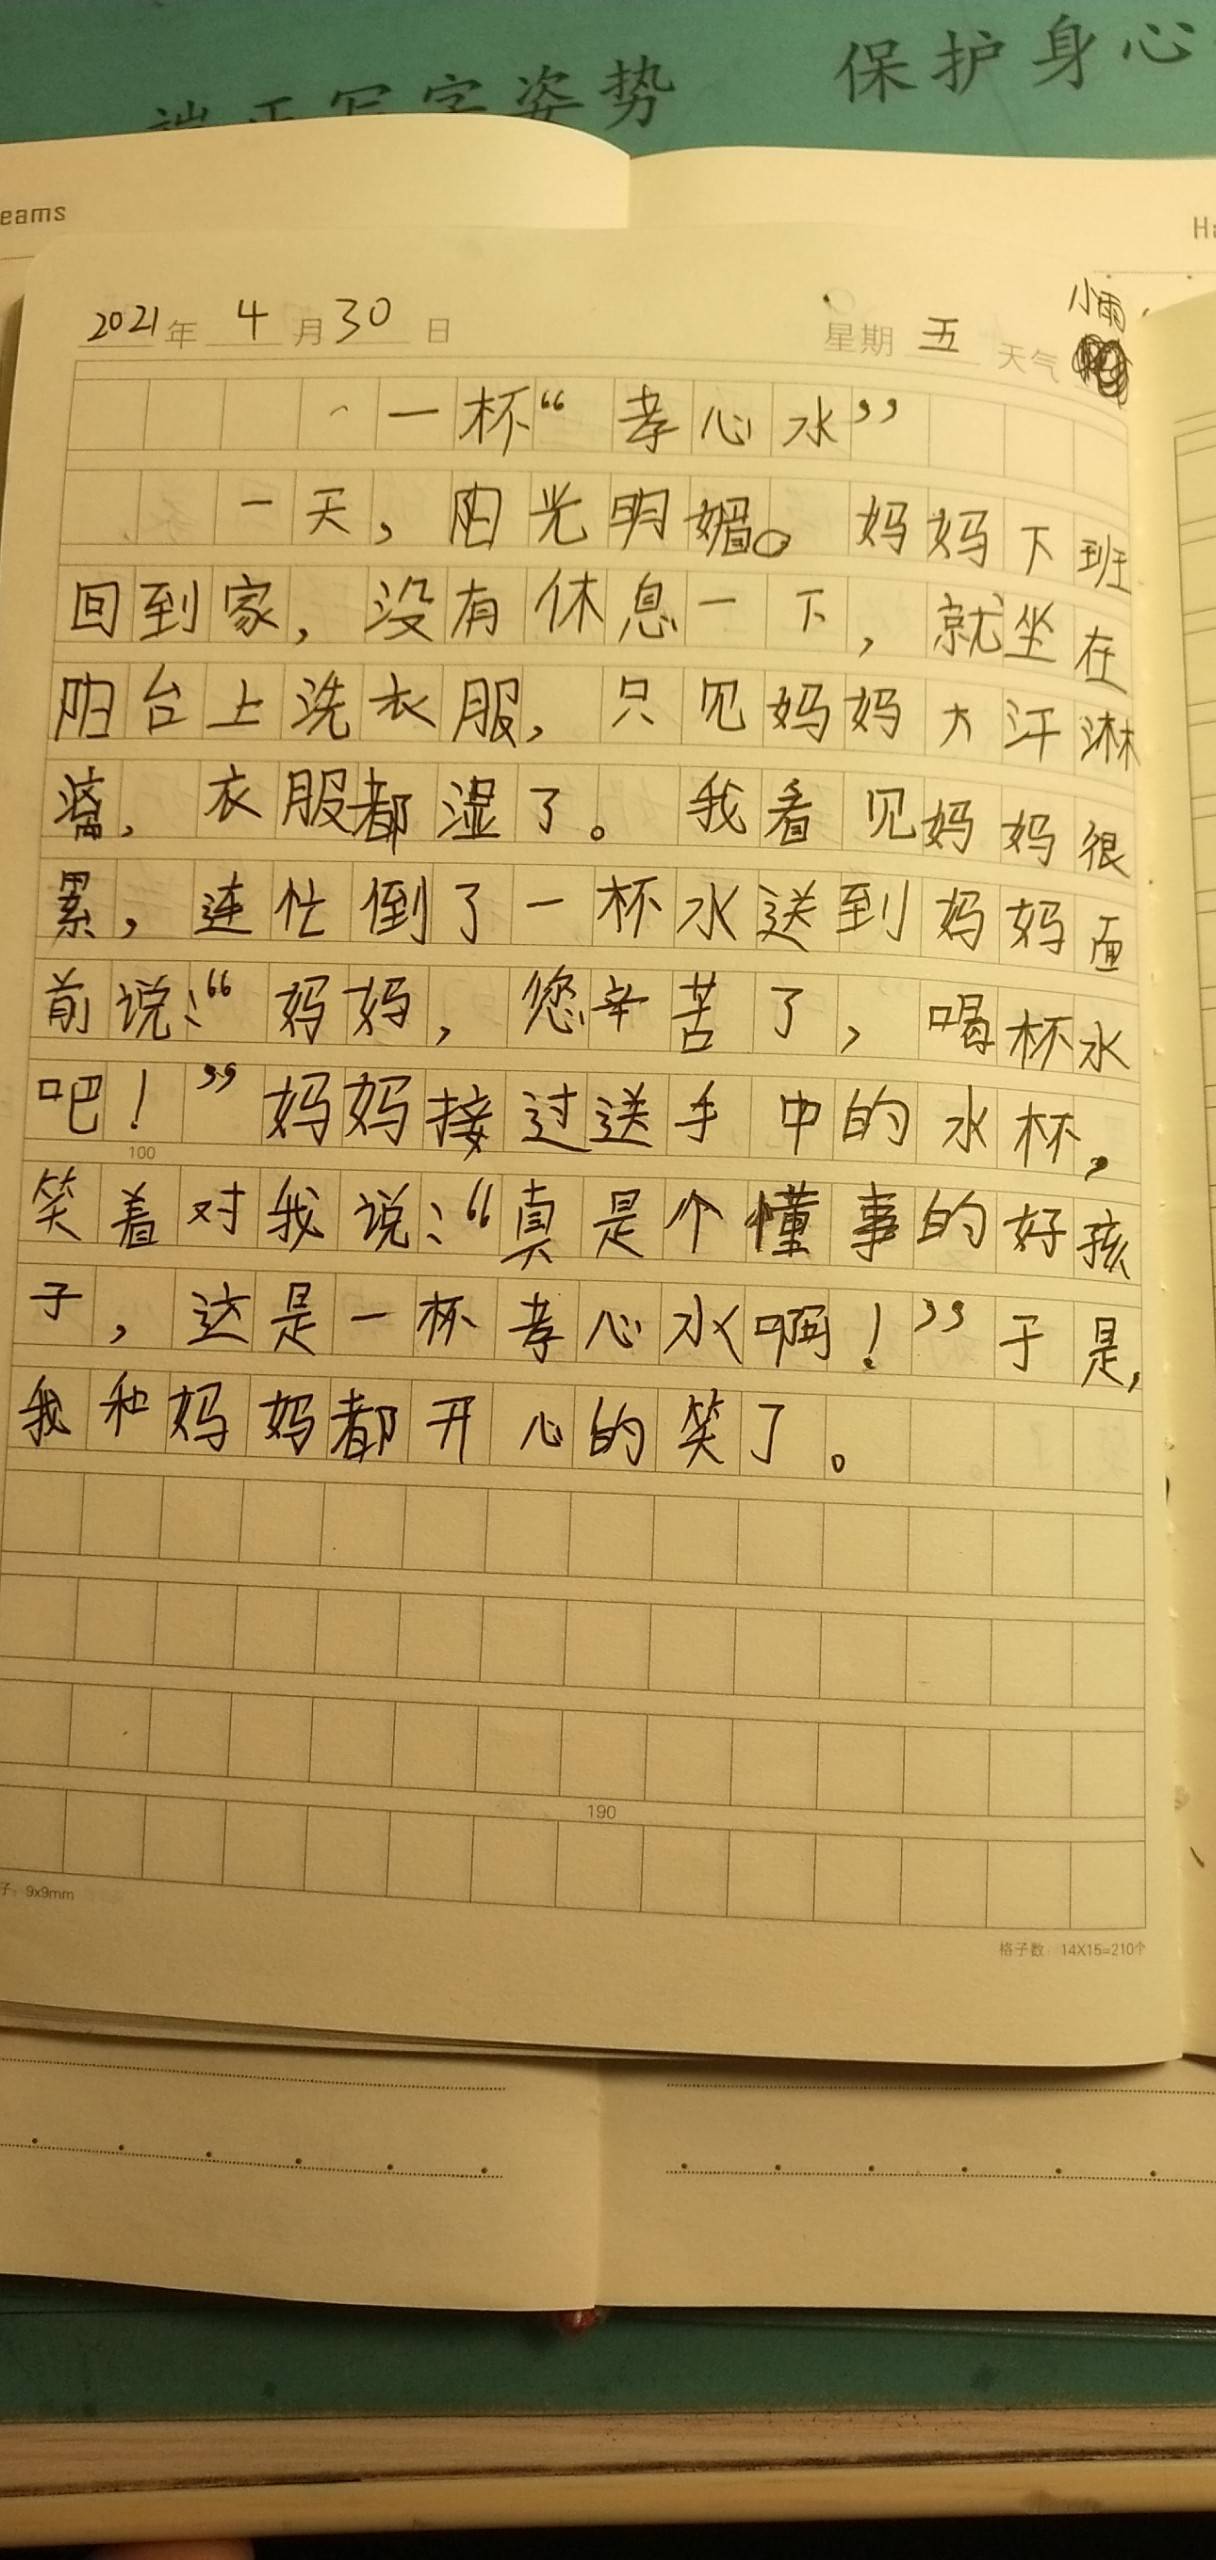 端正写字姿势 保护身心
eams
Ha
小雨
2021年 4月30日 星期五 天气
一杯“孝心水”
一天，阳光明媚。妈妈下班
回到家，没有休息一下，就坐在
阳台上洗衣服，只见妈妈大汗淋
漓，衣服都湿了。我看见妈妈很
累，连忙倒了一杯水送到妈妈面
前说：“妈妈，您辛苦了，喝杯水
吧！”妈妈接过送手中的水杯，
100
笑着对我说：“真是个懂事的好孩
子，这是一杯孝心水啊！”于是，
我和妈妈都开心的笑了。
190
子：9x9mm
格子数：14X15=210个